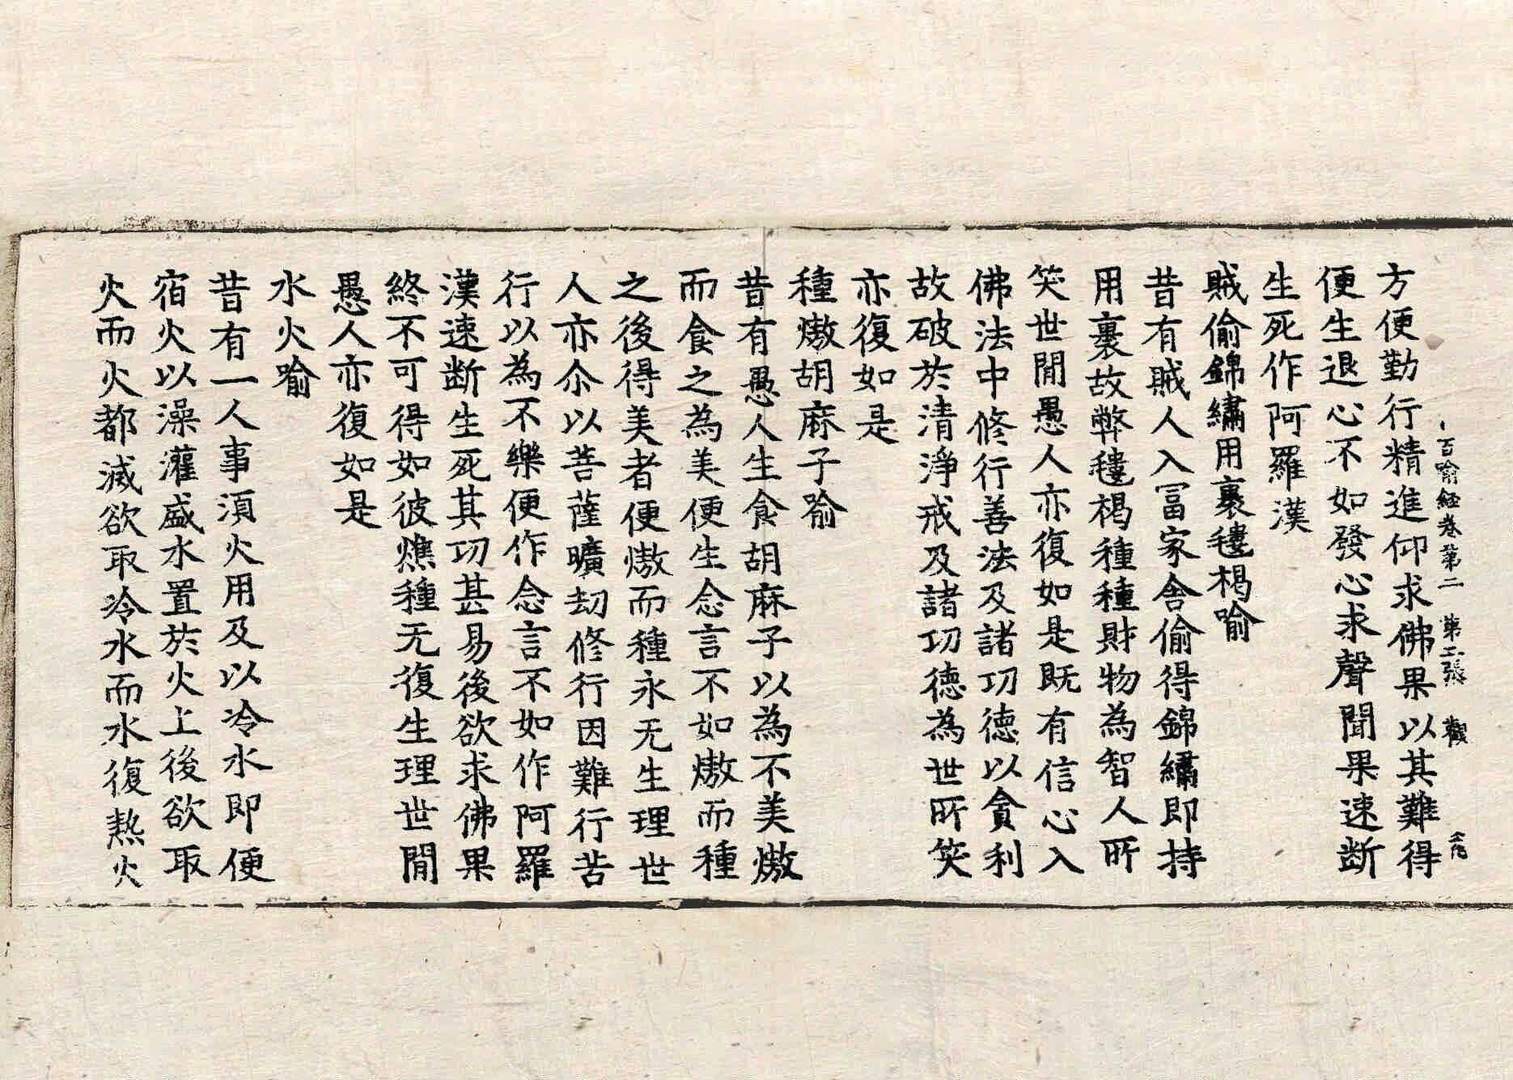 方便勤行精進仰求佛果以其難得
百喻經卷第二 第二張 觀
便生退心不如發心求聲聞果速斷
生死作阿羅漢
賊偷錦繡用裹氀褐喻
昔有賊人入冨家舍偷得錦繡即持
用裹故弊氀褐種種財物為智人所
笑世間愚人亦復如是既有信心入
佛法中修行善法及諸功德以貪利
故破於清淨戒及諸功德為世所笑
亦復如是
種熬胡麻子喻
昔有愚人生食胡麻子以為不美熬
而食之為美便生念言不如熬而種
之後得美者便熬而種永无生理世
人亦尒以菩薩曠劫修行因難行苦
行以為不樂便作念言不如作阿羅
漢速斷生死其功甚易後欲求佛果
終不可得如彼燋種无復生理世間
愚人亦復如是
水火喻
昔有一人事須火用及以冷水即便
宿火以澡灌盛水置於火上後欲取
火而火都滅欲取冷水而水復熱火